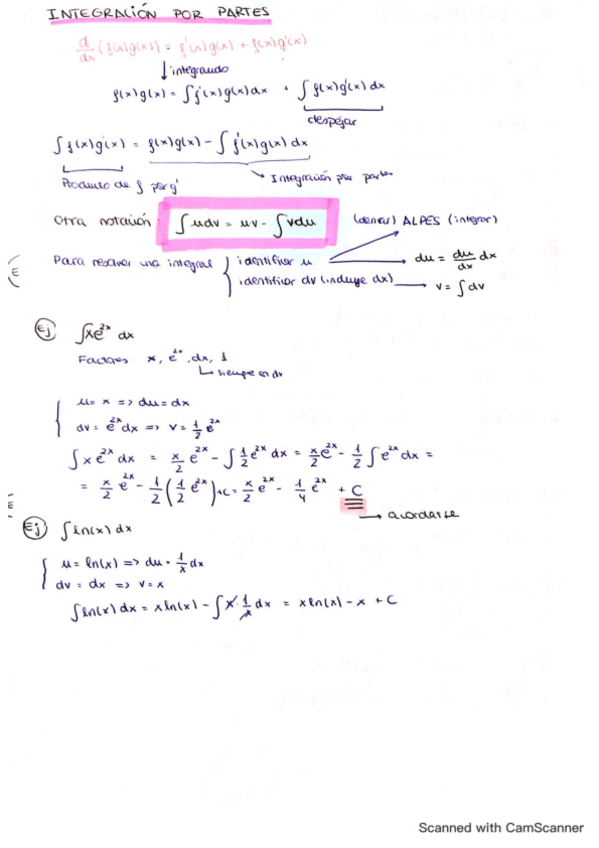 INTEGRACIÓN POR PARTES
d/dx (f(x)g(x)) = f'(x)g(x) + f(x)g'(x)
↓ integrando
f(x)g(x) = ∫f'(x)g(x)dx + ∫f(x)g'(x)dx
despejar
∫f(x)g'(x) = f(x)g(x) - ∫f'(x)g(x)dx
Producto de f por g' → Integración por partes
Otra notación: ∫udv = uv - ∫vdu (derivar) ALPES (integrar)
Para resolver una integral { identificar u → du = du/dx dx
identificar dv (incluye dx) → v = ∫dv
Ej ∫xe^2x dx
Factores x, e^2x, dx, 1
↳ siempre en dv
{ u = x => du = dx
dv = e^2x dx => v = 1/2 e^2x
∫xe^2x dx = x/2 e^2x - ∫1/2 e^2x dx = x/2 e^2x - 1/2 ∫e^2x dx =
= x/2 e^2x - 1/2 (1/2 e^2x) + C = x/2 e^2x - 1/4 e^2x + C
→ acordarse
Ej ∫ln(x)dx
{ u = ln(x) => du = 1/x dx
dv = dx => v = x
∫ln(x)dx = xln(x) - ∫x · 1/x dx = xln(x) - x + C
Scanned with CamScanner